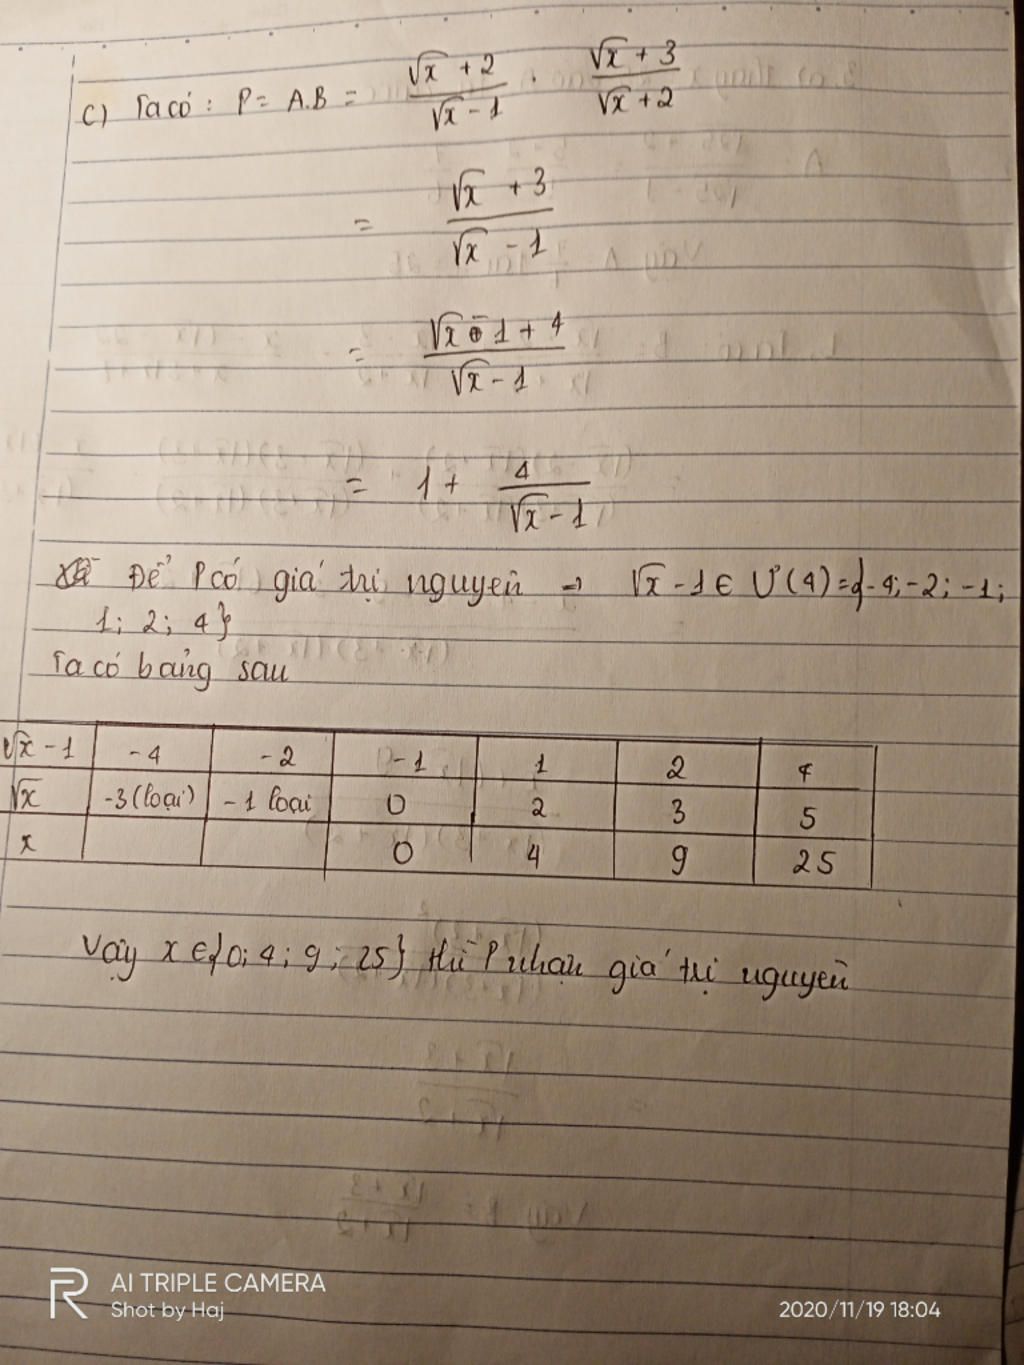 c) Ta có : P = A.B = (√x + 2)/(√x - 1) . (√x + 3)/(√x + 2)
= (√x + 3)/(√x - 1)
= (√x - 1 + 4)/(√x - 1)
= 1 + 4/(√x - 1)
Để P có giá trị nguyên → √x - 1 ∈ Ư(4) = {-4; -2; -1;
1; 2; 4}
Ta có bảng sau
√x - 1 | -4 | -2 | -1 | 1 | 2 | 4
√x | -3 (loại) | -1 loại | 0 | 2 | 3 | 5
x | | | 0 | 4 | 9 | 25
Vậy x ∈ {0; 4; 9; 25} thì P nhận giá trị nguyên
AI TRIPLE CAMERA
Shot by Haj
2020/11/19 18:04